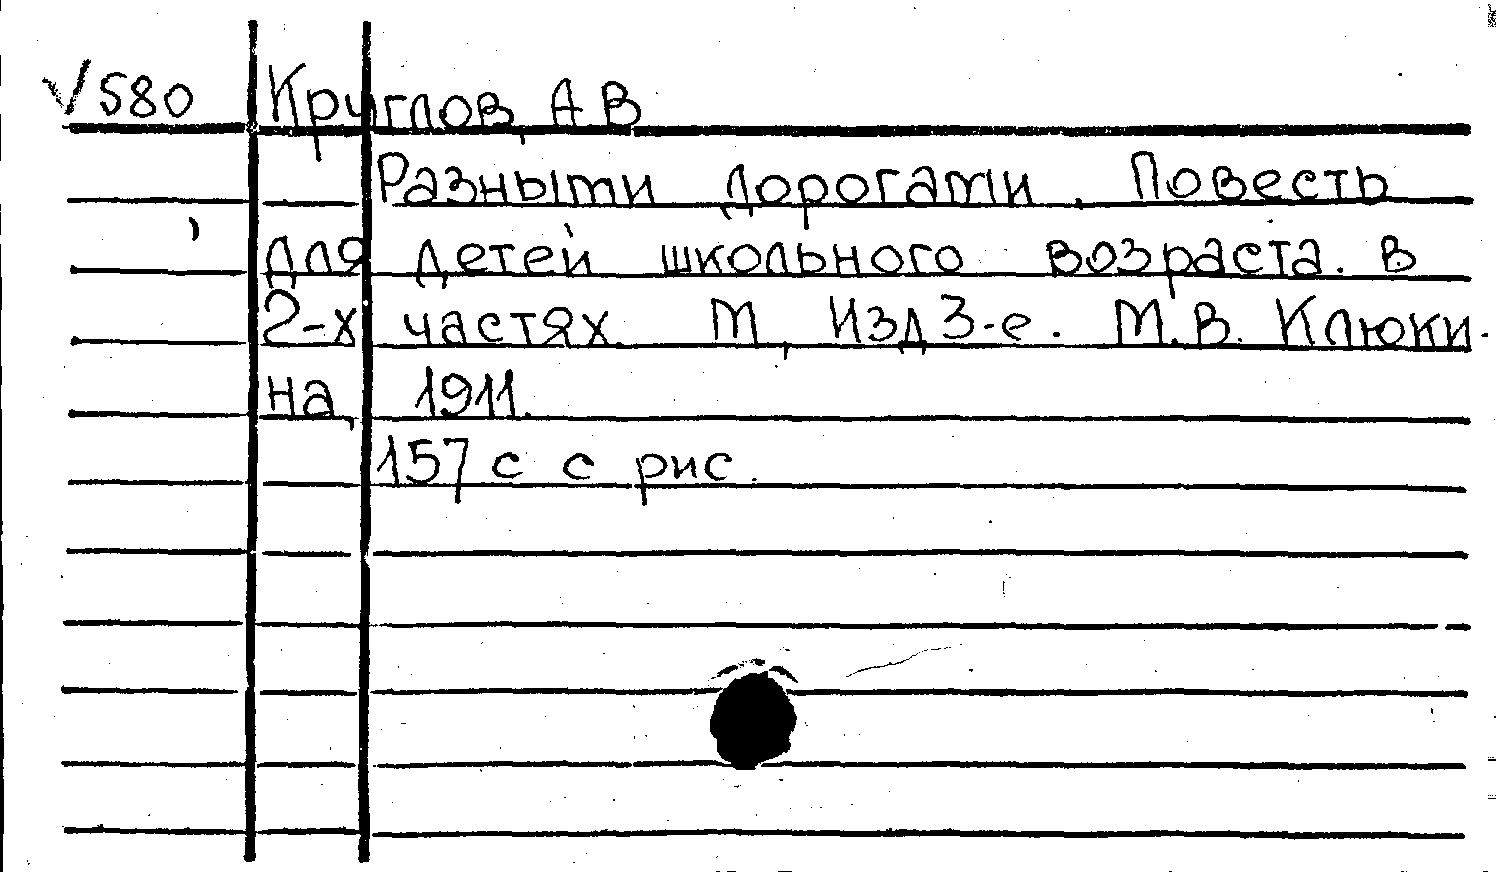 √580 Круглов, А В
Разными дорогами. Повесть
для детей школьного возраста. в
2-х частях. М, Изд 3-е. М.В. Клюки-
на, 1911.
157 с с рис.